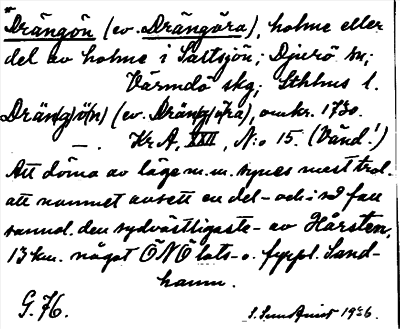 *Drängön (ev. Drängöra), holme eller
del av holme i Saltsjön; Djurö sn;
Värmdö skg; Sthlms l.
Drän(g)ö(n) (ev. Drän(g)ö(ra), omkr. 1730.
— . Kr A, XXII, N:o 15. (Vänd!)
Att döma av läge m.m. synes mest trol.
att namnet avsett en del - och i så fall
sannol. den sydvästligaste - av Hårsten,
13 km. något ÖNÖ lots- o. fyrpl. Sand-
hamn.
G. 76. 1936.